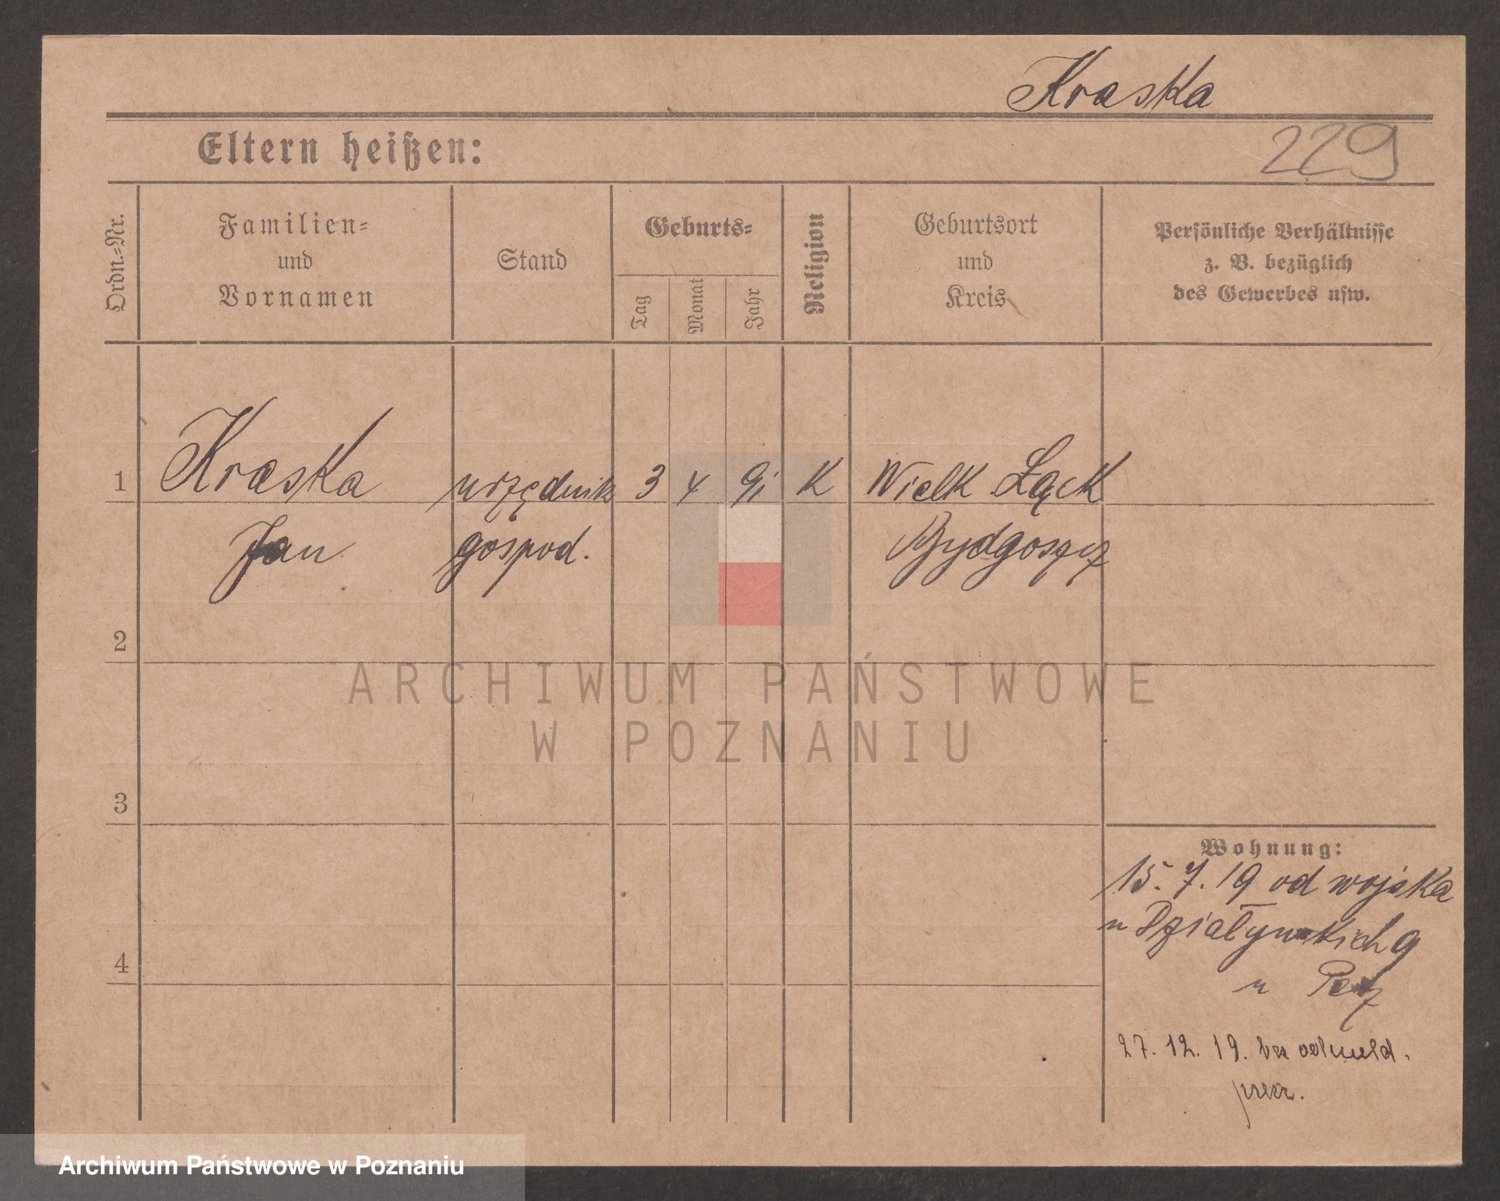 Kraska
229
Eltern heißen:
Ordn.-Nr.
Familien-
und
Vornamen
Stand
Geburts-
Tag
Monat
Jahr
Religion
Geburtsort
und
Kreis
Persönliche Verhältnisse
z. B. bezüglich
des Gewerbes usw.
1 Kraska urzędnik 3 4 91 K Wielk Łąck
Jan gospod. Bydgoszcz
2
ARCHIWUM PAŃSTWOWE
W POZNANIU
3
Wohnung:
15.7.19 od wojska
u Działyńskich 9
u
4
27.12.19. bez odmeld.
Archiwum Państwowe w Poznaniu